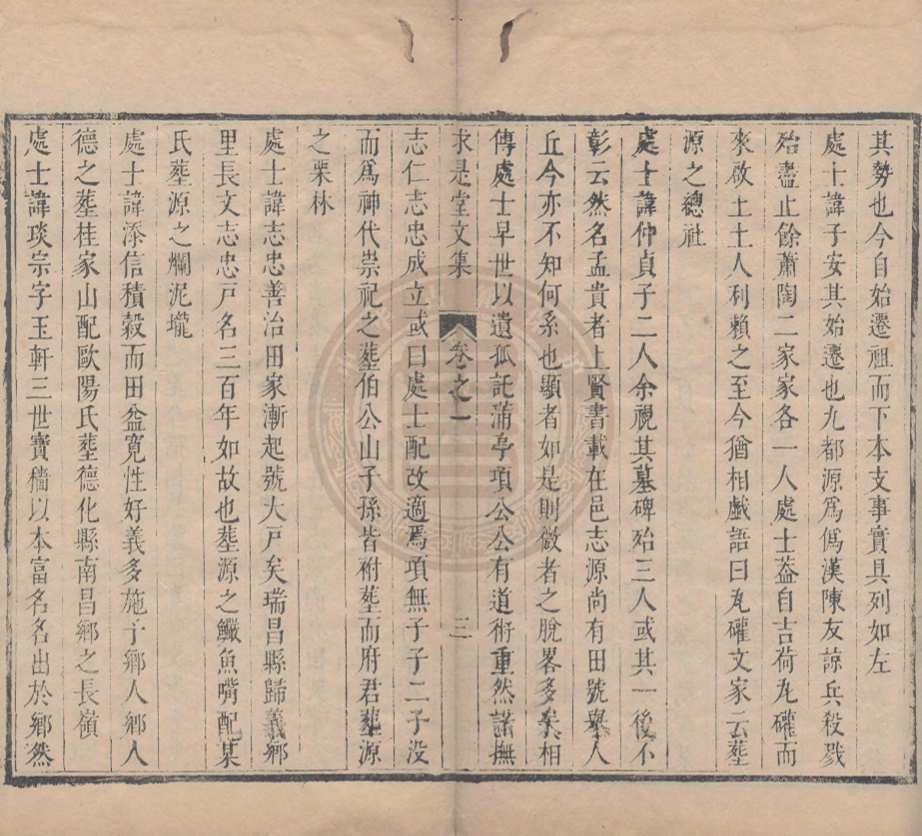 其勢也今自始遷祖而下本支事實具列如左
處士諱子安其始遷也九都源爲僞漢陳友諒兵殺戮
殆盡止餘蕭陶二家家各一人處士葢自吉荷瓦礶而
來啟土土人利賴之至今猶相戲語曰瓦礶文家云塟
源之總社
處士諱仲貞子二人余視其墓碑殆三人或其一後不
彰云然名孟貴者上賢書載在邑志源尚有田號舉人
丘今亦不知何系也顯者如是則微者之脫畧多矣相
傳處士早世以遺孤託蒲亭項公公有道術重然諾撫
求是堂文集 卷之一 三
志仁志忠成立或曰處士配改適焉項無子子二子没
而爲神代崇祀之塟伯公山子孫皆祔塟而府君塟源
之栗林
處士諱志忠善治田家漸起號大戸矣瑞昌縣歸義鄉
里長文志忠戸名三百年如故也塟源之鱖魚嘴配某
氏塟源之爛泥壠
處士諱添信積榖而田益寬性好義多施予鄉人鄉人
德之塟桂家山配歐陽氏塟德化縣南昌鄉之長嶺
處士諱琰宗字玉軒三世寶穡以本富名名出於鄉然